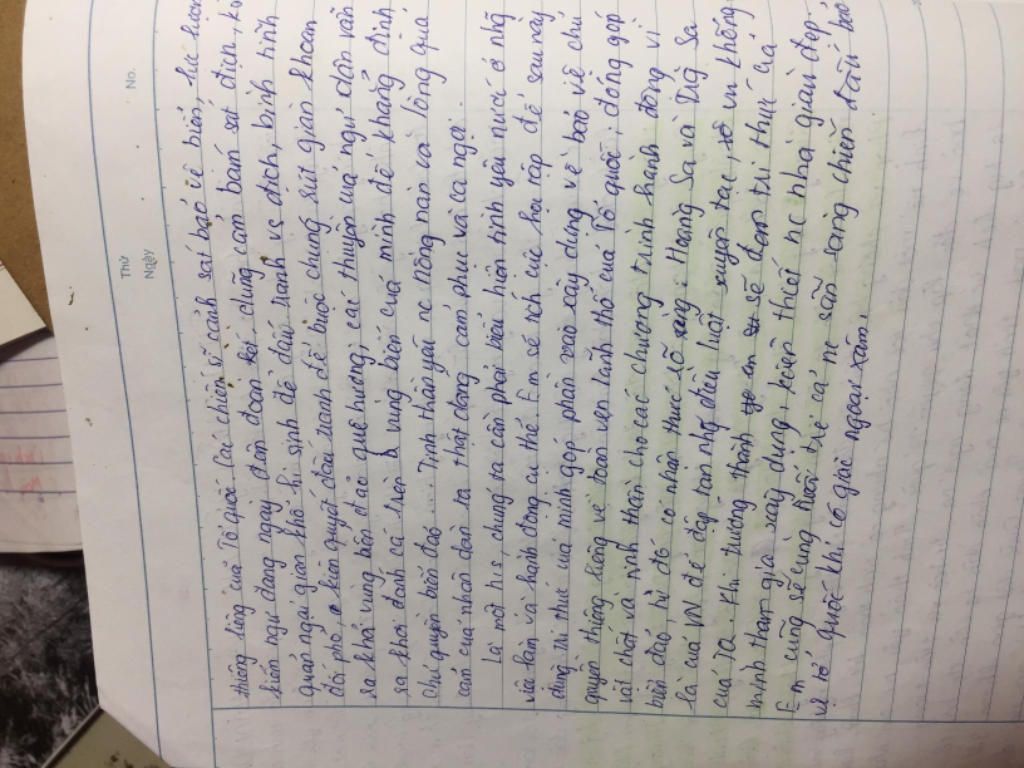 Thứ
Ngày
No.
thiêng liêng của Tổ quốc. Các chiến sĩ cảnh sát bảo vệ biển, lực lượng
kiểm ngư đang ngày đêm đoàn kết, dũng cảm bám sát địch, ko
quản ngại gian khổ hi sinh để đấu tranh vs địch, bình tĩnh
đối phó, kiên quyết đấu tranh để buộc chúng rút giàn khoan
ra khỏi vùng biển đảo quê hương, các thuyền của ngư dân vẫn
ra khơi đánh cá trên vùng biển của mình để khẳng định
chủ quyền biển đảo. Tinh thần yêu nc nồng nàn và lòng quả
cảm của nhân dân ta thật đáng cảm phục và ca ngợi.
Là một h/s, chúng ta cần phải biểu hiện tình yêu nước ở nhg
việc làm và hành động cụ thể. Em sẽ tích cực học tập để sau này
dùng tri thức của mình góp phần vào xây dựng và bảo vệ chủ
quyền thiêng liêng về toàn vẹn lãnh thổ của Tổ quốc, đóng góp
vật chất và tinh thần cho các chương trình hành động vì
biển đảo, từ đó có nhận thức rõ ràng: Hoàng Sa và Trg Sa
là của VN để đập tan nhg điều luật xuyên tạc, vu khống
của TQ. Khi trưởng thành em sẽ đem tri thức của
mình tham gia xây dựng, kiến thiết nc nhà giàu đẹp.
Em cũng sẽ cùng tuổi trẻ cả nc sẵn sàng chiến đấu bảo
vệ tổ quốc khi có giặc ngoại xâm!